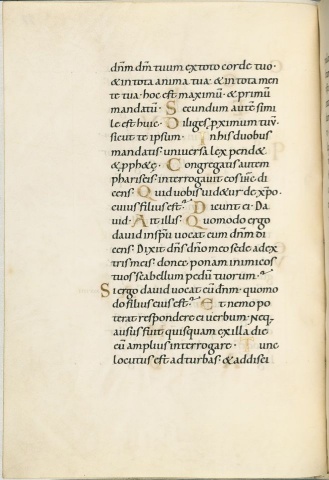 dñm dm̃ tuum ex toto corde tuo·
& in tota anima tua· & in tota men
te tua· hoc est maximũ· & primũ
mandatũ· Secundum autẽ simi
le est huic· Diliges pximum tuũ·
sicut te ipsum· In his duobus
mandatis· universa lex pend&
& pph&ę· Congregatis autem
phariseis· interrogavit eos ihc̃· di
cens· Quid vobis vid&ur de xp̃o·
cuius filius est· Dicunt ei· Da
vid· Ait illis· Quomodo ergo
david in spũ vocat eum dñm· di
cens· Dixit dñs dño meo sede a dex
tris meis· donec ponam inimicos
tuos scabellum pedũ tuorum·
Si ergo david vocat eũ dñm· quomo
do filius eius est· Et nemo po
terat respondere ei verbum· Neq,
ausus fuit quisquam ex illa die
eũ amplius interrogare· Tunc
locutus est ad turbas· & ad disci